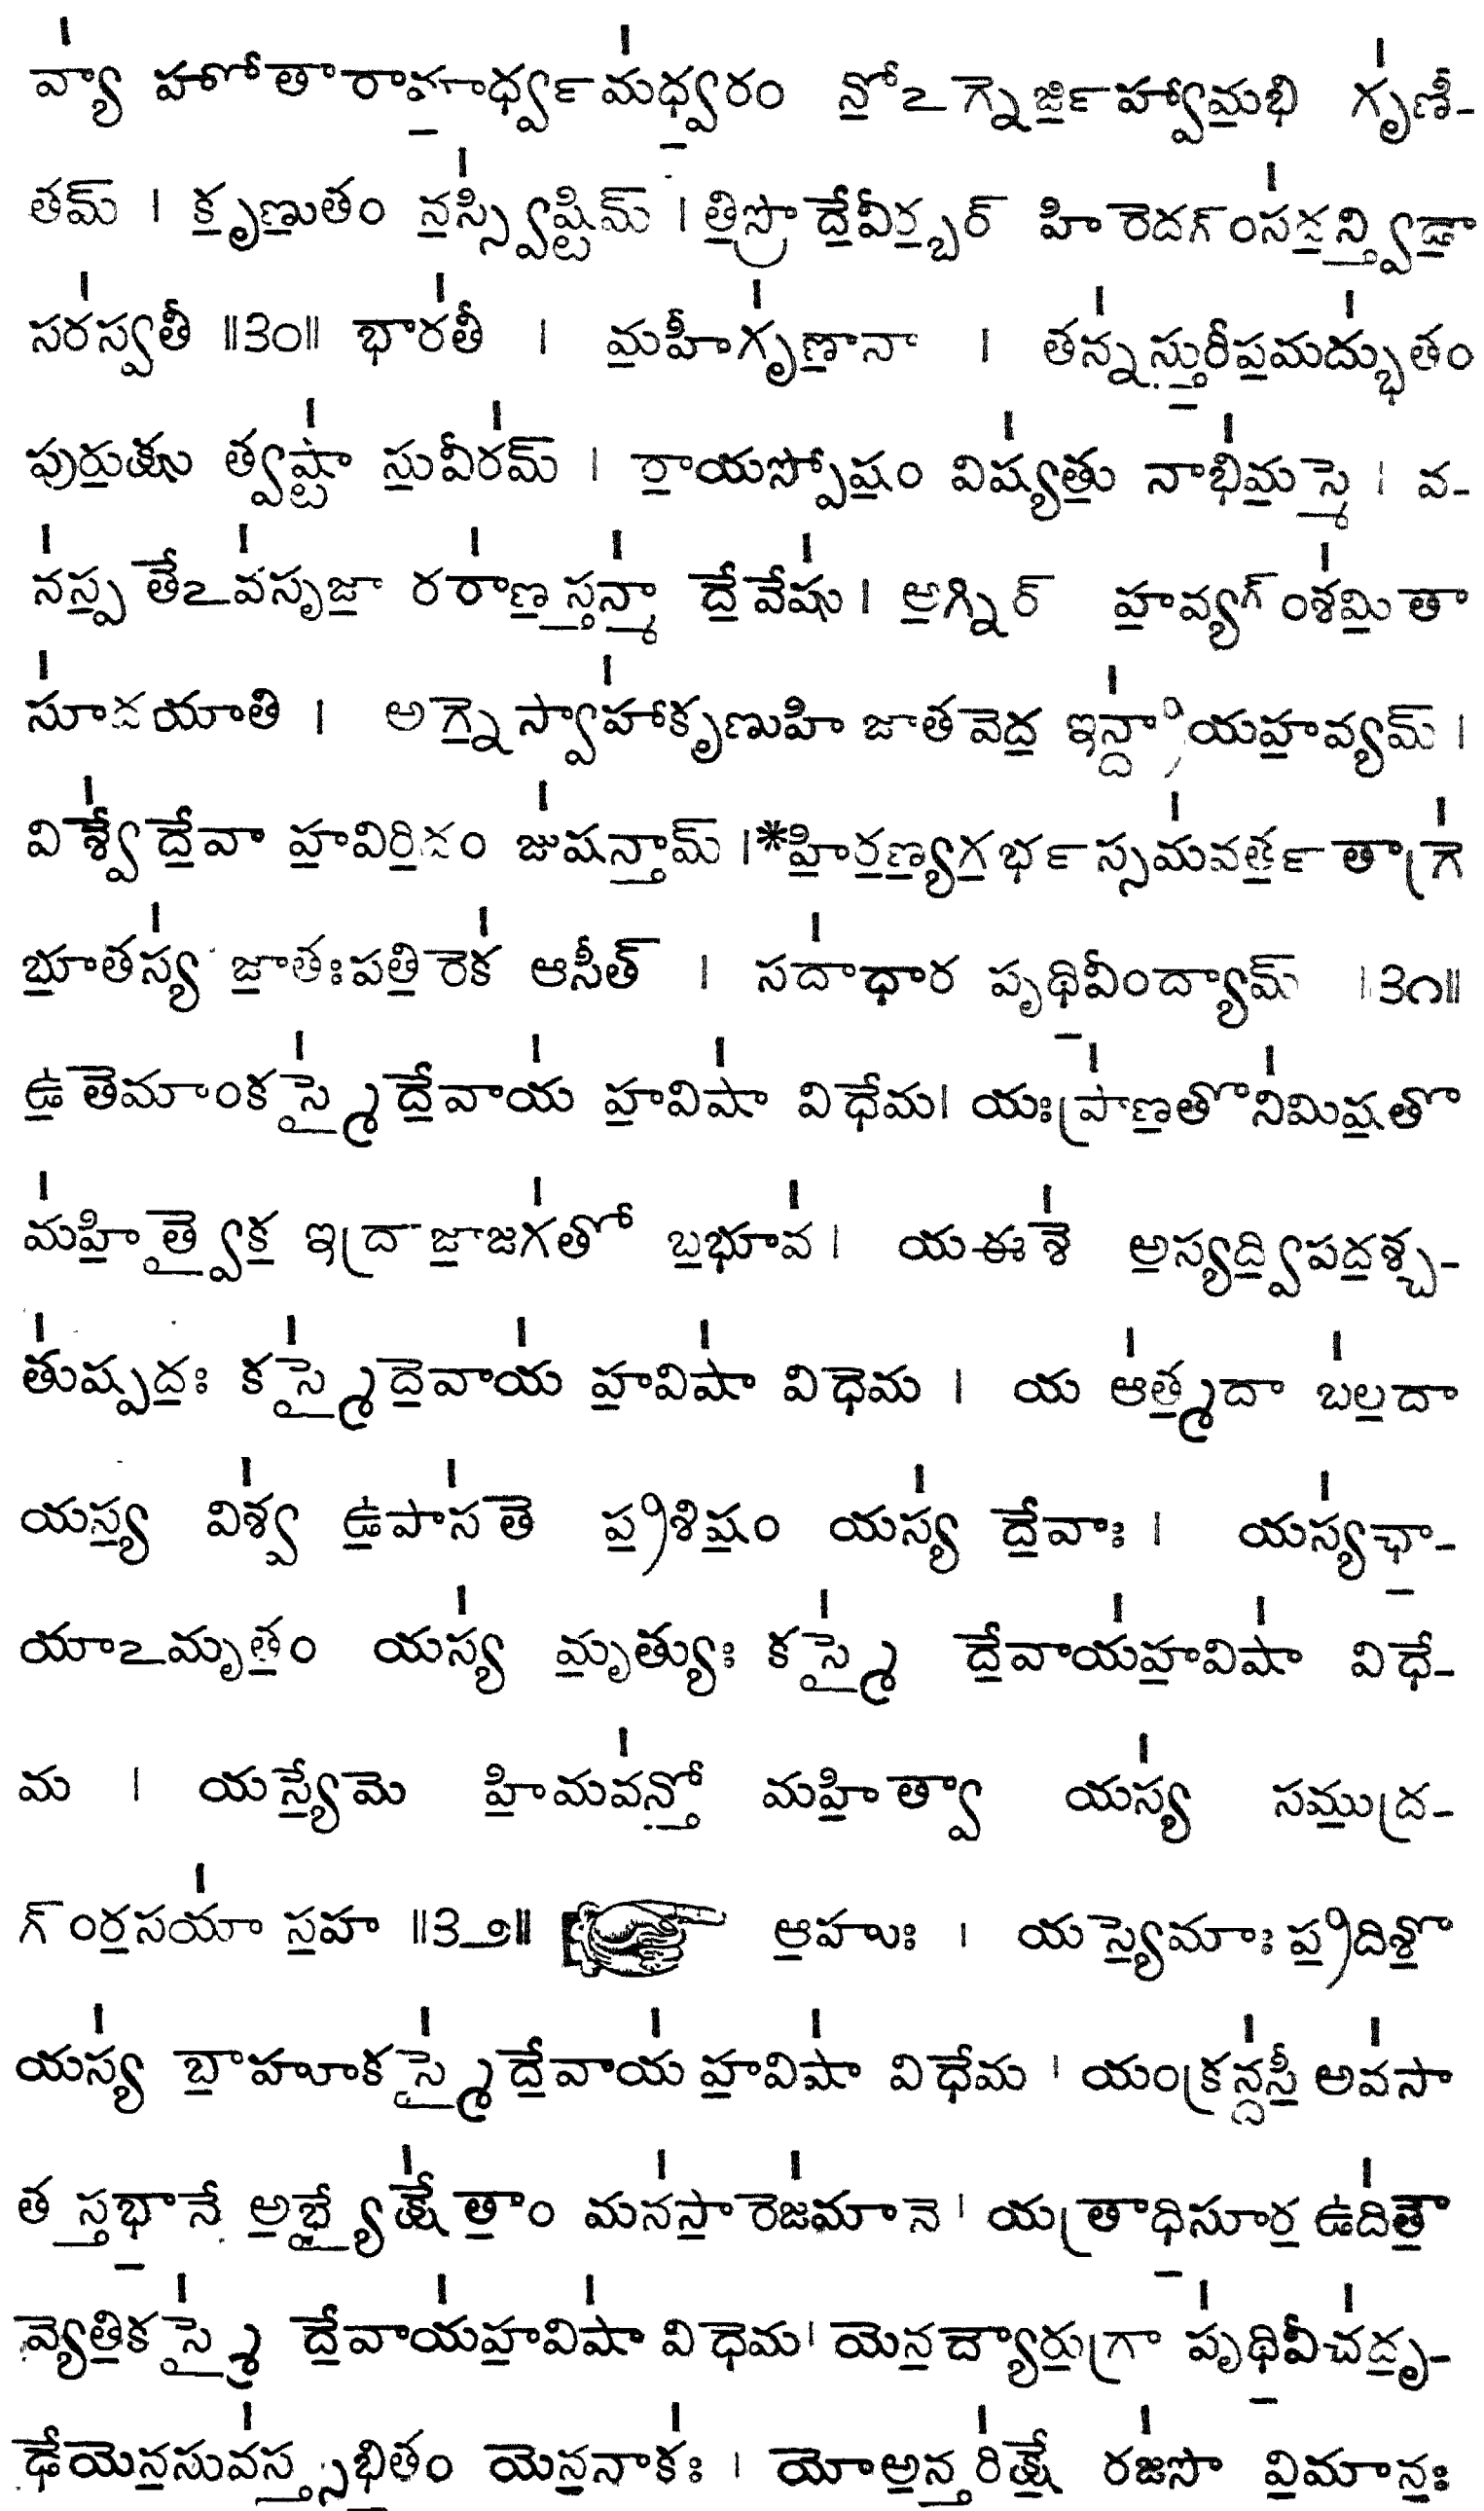 వ్యా॑ హోతారావూ॒ర్ధ్వమ॑ధ్వ॒రం నో॒ఽగ్నెర్జి॒హ్వామ॒భి గృ॑ణీ-
తమ్ । కృ॒ణు॒తం న॒స్స్వి॑ష్టిమ్ । తి॒స్రో దే॒వీర్బ॒ర్ హి రెదగ్ంస॑ద॒న్త్విడా॒
సర॑స్వతీ ॥౩౦॥ భార॑తీ । మ॒హీగృ॑ణా॒నా । తన్న॑స్తు॒రీప॒మద్భు॑తం
పురు॒క్షు త్వష్టా॑ సు॒వీర॑మ్ । రా॒యస్పోష॒ం విష్య॑తు॒ నాభి॑మ॒స్మె । వ-
న॑స్ప॒తేఽవ॑సృజా॒ రరా॑ణ॒స్తన్మా॑ దే॒వేషు॑ । అ॒గ్నిర్ హ॒వ్యగ్ంశ॑మి॒తా
సూ॑దయాతి । అగ్నె॒స్వాహా॑కృణుహి జాతవెద॒ ఇన్ద్రా॑యహ॒వ్యమ్ ।
విశ్వే॑దే॒వా హ॒విరి॒దం జు॑షన్తామ్ ।*హి॒ర॒ణ్య॒గ॒ర్భస్సమ॑వర్త॒తాగ్రె॑
భూ॒తస్య॑ జా॒తఃపతి॒రెక॑ ఆసీత్ । సదా॑ధార పృథి॒వీంద్యామ్ ॥౩౧॥
ఉ॒తెమాంకస్మై॑దే॒వాయ॑ హ॒విషా॑ విధేమ। యఃప్రా॑ణ॒తొని॑మిష॒తొ
మ॑హి॒త్వైక॒ ఇద్రాజా॒జగ॑తో బ॒భూవ॑। యఈశె॑ అ॒స్యద్వి॒పద॒శ్చ-
తు॑ష్పద॒ః కస్మై॑దె॒వాయ॑ హ॒విషా॑ విధెమ । య ఆ॑త్మ॒దా బ॑ల॒దా
యస్య॒ విశ్వ॑ ఉ॒పాస॑తె ప్ర॒శిష॒ం యస్య॑ దే॒వాః । యస్య॑ఛా॒-
యాఽమృత॒ం యస్య॑ మృ॒త్యుః కస్మై॑ దే॒వాయ॑హ॒విషా॑ విధే-
మ । యస్యే॒మె హి॒మవ॑న్తో మహి॒త్వా యస్య॑ సము॒ద్ర-
గ్ంర॒సయా॑ స॒హ ॥౩౨॥ ఆ॒హుః । యస్యె॒మాః ప్ర॒దిశొ॒
యస్య॑ బా॒హూకస్మై॑దే॒వాయ॑ హ॒విషా॑ విధేమ । యంక్రన్ద॑సీ॒ అవ॑సా
త స్తభా॒నే అ॒భ్యైక్షే॑తా॒ం మన॑సా॒రెజ॑మానె । యత్రాధి॒సూర॒ ఉది॑తౌ॒
వ్యెతి॒కస్మై॑ దే॒వాయ॑హ॒విషా॑ విధెమ। యెన॒ద్యారు॒గ్రా పృ॑థి॒వీచ॑దృ॒-
ఢేయెన॒సువ॑స్త॒స్భితం యెన॒నాక॑ః । యోఅ॒న్తరి॑క్షే రజ॑సొ వి॒మాన॒ః